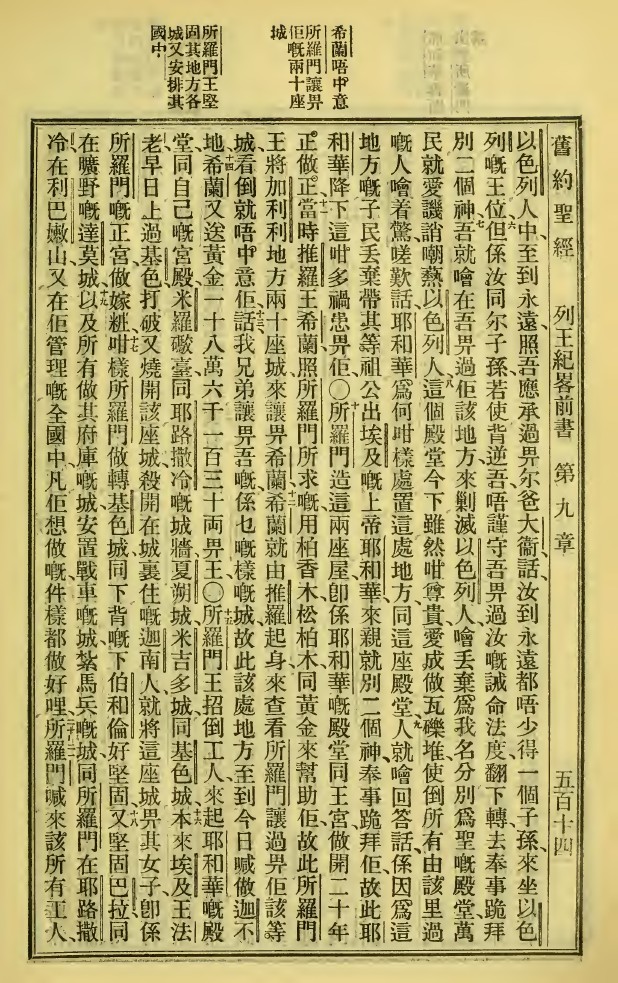 希蘭唔中意
所羅門讓畀
佢嘅兩十座
城
所羅門王堅
固其地方各
城又安排其
國中
舊約聖經 列王紀畧前書 第九章 五百十四
以色列人中至到永遠照吾應承過畀尔爸大衞話汝到永遠都唔少得一個子孫來坐以色
列嘅王位六但係汝同尔子孫若使背逆吾唔謹守吾畀過汝嘅誡命法度翻下轉去奉事跪拜
別二個神七吾就噲在吾畀過佢該地方來剿滅以色列人噲丢棄爲我名分別爲聖嘅殿堂萬
民就愛譏誚嘲爇以色列人八這個殿堂今下雖然咁尊貴愛成做瓦礫堆使倒所有由該里過
嘅人噲着驚嗟歎話耶和華爲何咁樣處置這處地方同這座殿堂九人就噲回答話係因爲這
地方嘅子民丢棄帶其等祖公出埃及嘅上帝耶和華來親就別二個神奉事跪拜佢故此耶
和華降下這咁多禍患畀佢〇十所羅門造這兩座屋卽係耶和華嘅殿堂同王宮做開二十年
正做正十一當時推羅王希蘭照所羅門所求嘅用柏香木松柏木同黃金來幫助佢故此所羅門
王將加利利地方兩十座城來讓畀希蘭十二希蘭就由推羅起身來查看所羅門讓過畀佢該等
城看倒就唔中意十三佢話我兄弟讓畀吾嘅係乜嘅樣嘅城故此該處地方至到今日喊做迦不
地十四希蘭又送黃金一十八萬六千一百三十両畀王〇十五所羅門王招倒工人來起耶和華嘅殿
堂同自己嘅宮殿米羅礮臺同耶路撒冷嘅城牆夏朔城米吉多城同基色城十六本來埃及王法
老早日上過基色打破又燒開該座城殺開在城裏住嘅迦南人就將這座城畀其女子卽係
所羅門嘅正宮做嫁粧十七咁樣所羅門做轉基色城同下背嘅下伯和倫好堅固十八又堅固巴拉同
在曠野嘅達莫城十九以及所有做其府庫嘅城安置戰車嘅城紮馬兵嘅城同所羅門在耶路撒
冷在利巴嫩山又在佢管理嘅全國中凡佢想做嘅件樣都做好哩所羅門喊來該所有工人